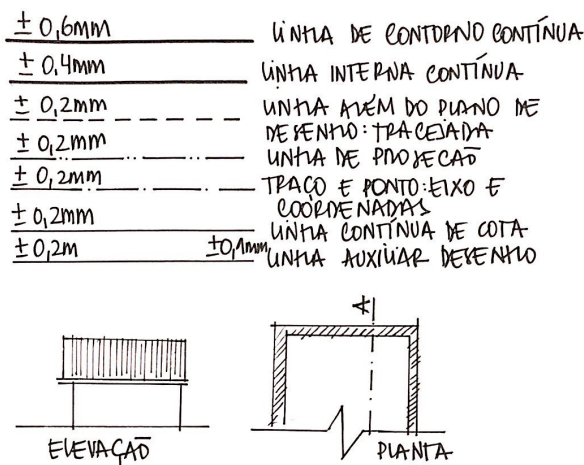 ± 0,6mm LINHA DE CONTORNO CONTÍNUA
± 0,4mm LINHA INTERNA CONTÍNUA
± 0,2mm LINHA ALÉM DO PLANO DE
DESENHO: TRACEJADA
± 0,2mm LINHA DE PROJECAÕ
± 0,2mm TRAÇO E PONTO: EIXO E
COORDENADAS
± 0,2mm LINHA CONTÍNUA DE COTA
± 0,2m ±0,1mm LINHA AUXILIAR DESENHO
A
ELEVAÇAÕ
PLANTA